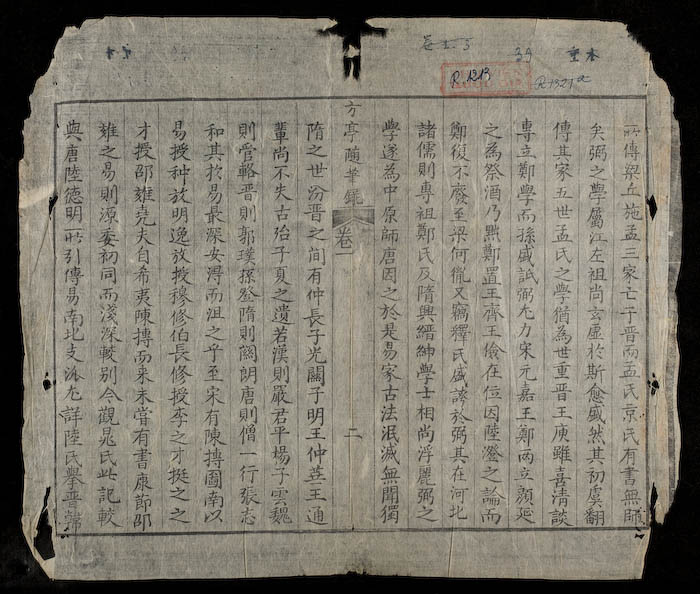 39
重本
R.1213
所傳梁丘施孟三家亡于晉而孟氏京氏有書無師
矣弼之學屬江左祖尚玄虛於斯愈盛然其初虞翻
傳其家五世孟氏之學猶為世重晉王庾雖喜清談
專立鄭學而孫盛詆弼尤力宋元嘉王鄭両立顏延
之為祭酒乃黜鄭置王齊王儉在位因陸澄之論而
鄭復不廢至梁何胤又竊釋氏盛談於弼其在河北
諸儒則專祖鄭氏及隋興縉紳學士相尚浮麗弼之
學遂為中原師唐因之於是易家古法泯滅無聞獨
方亭隨筆錄 卷一 二
隋之世汾晉之間有仲長子光關子明王仲華王通
輩尚不失古殆子夏之遺若漢則嚴君平楊子雲魏
則管輅晉則郭璞孫登隋則関朗唐則僧一行張志
和其於易最深安得而沮之乎至宋有陳摶圖南以
易授种放明逸放授穆修伯長修授李之才挺之之
才授邵雍堯夫自希夷陳摶而来未嘗有書康節邵
雍之易則源委初同而淺深較别今觀晁氏此記較
典唐陸德明所引傳易南北支派尤詳陸氏擧晉